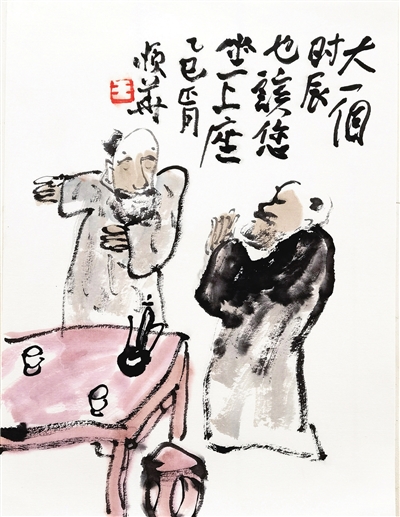 大一個
时辰
也該您
坐上座
乙巳正月
順華
王